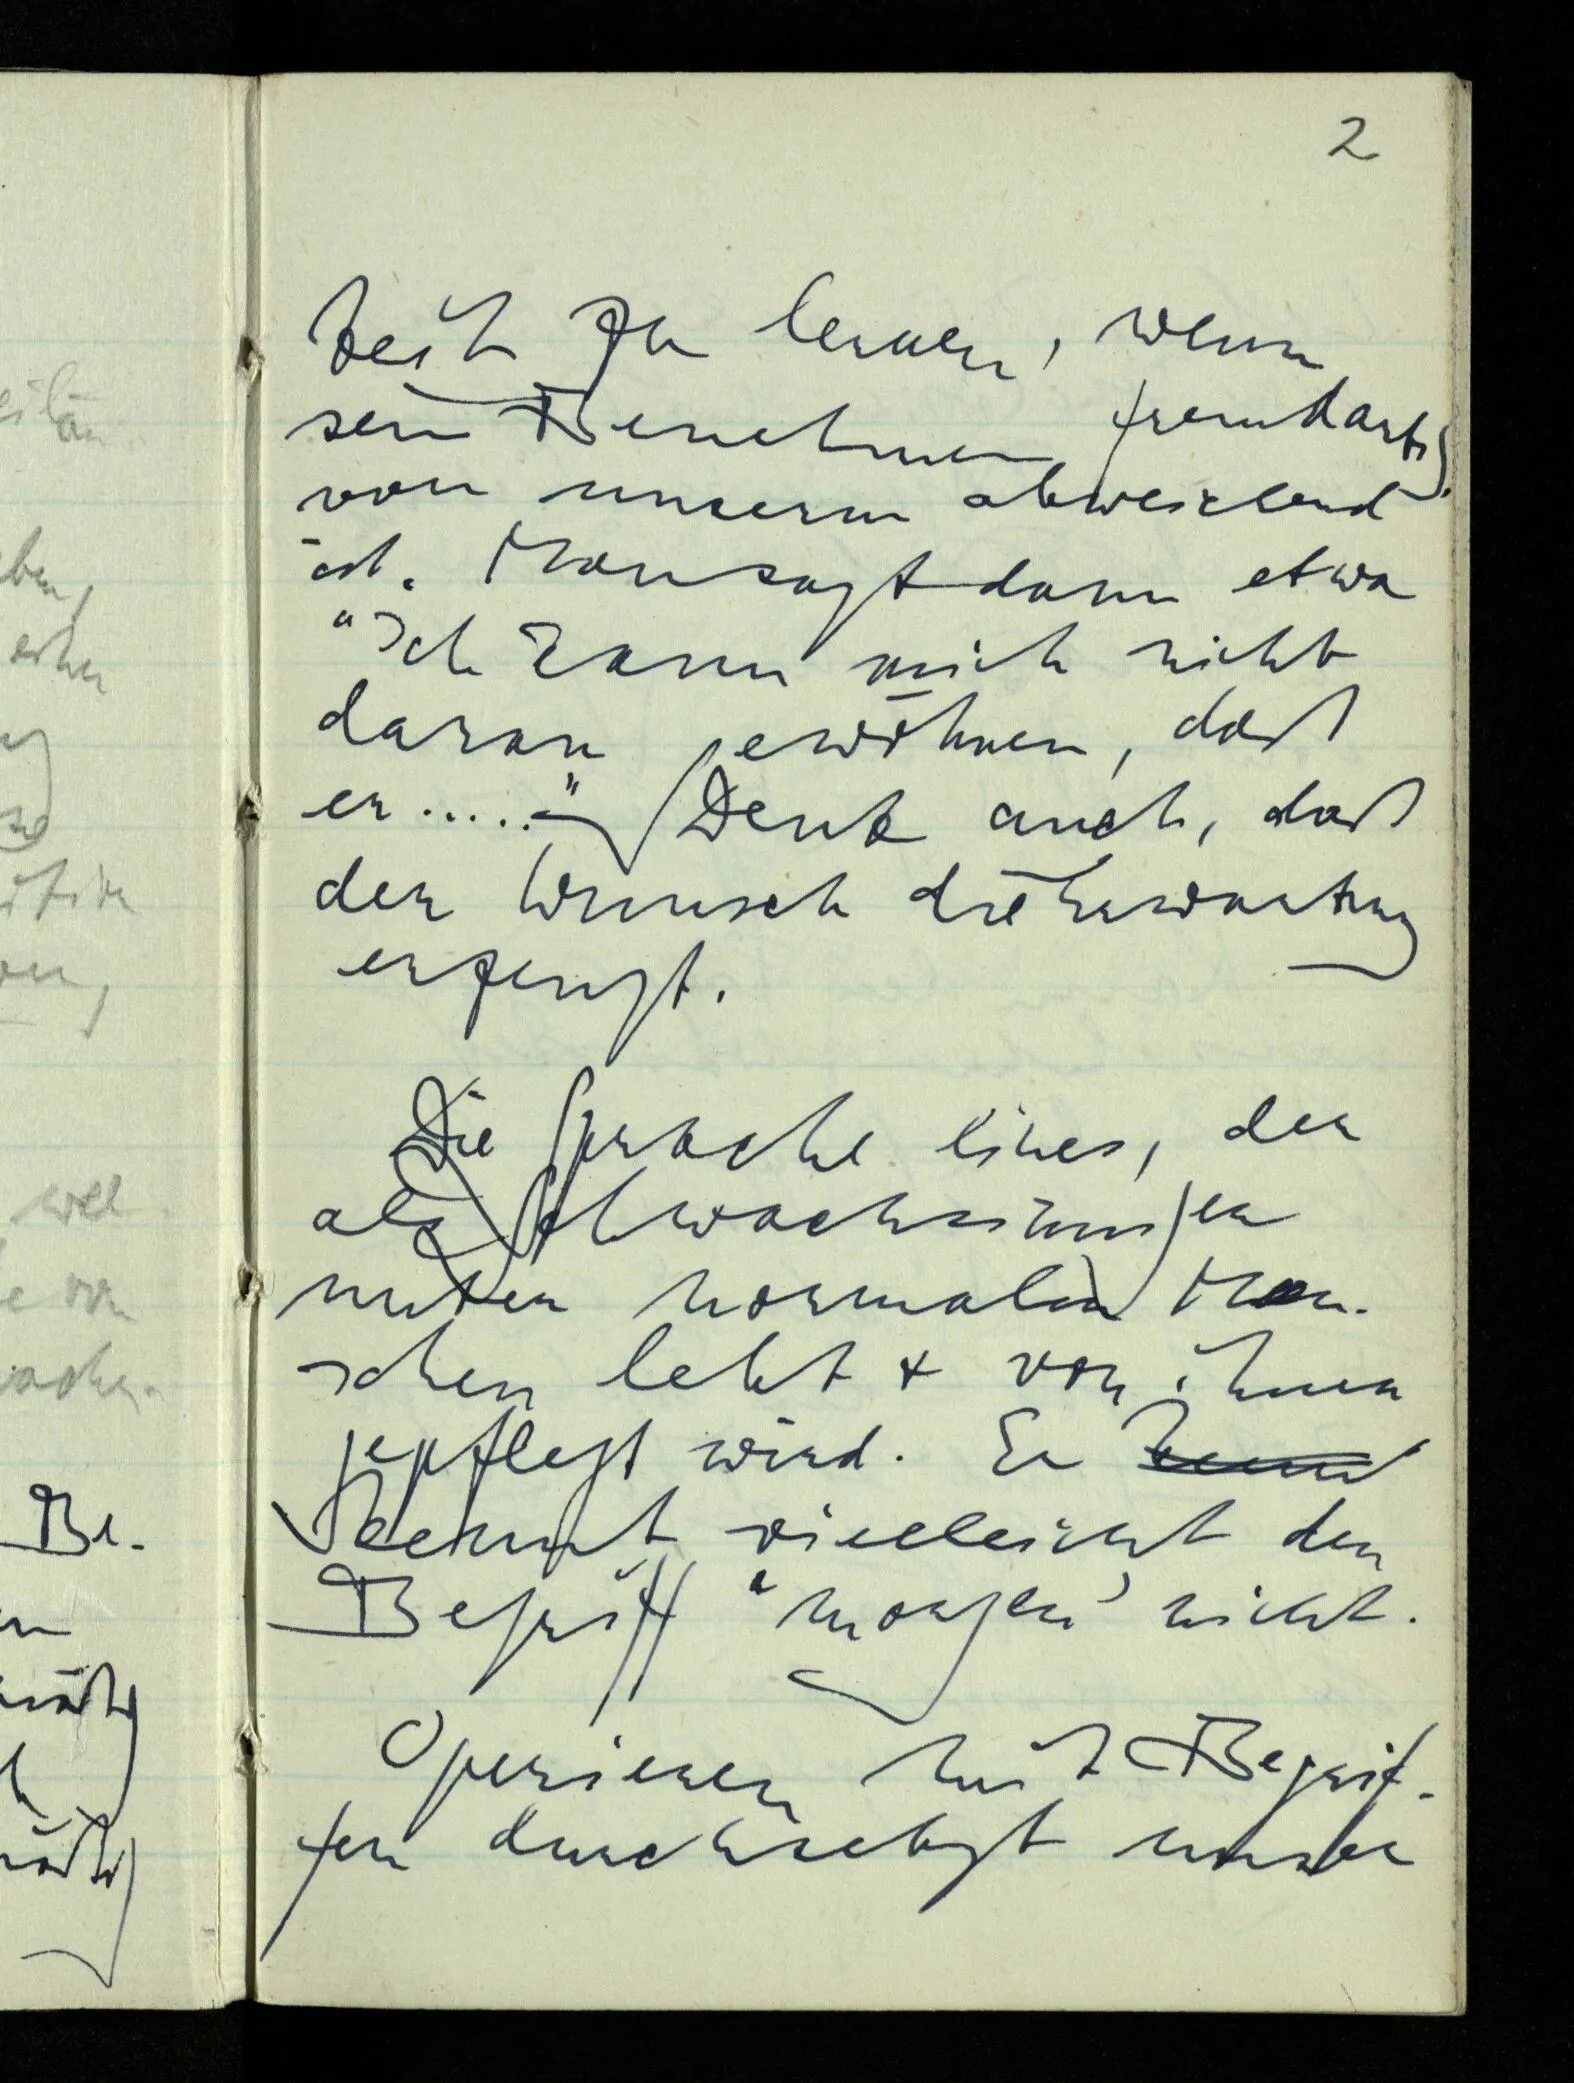 2
keit zu lernen, wenn
sein Benehmen fremdartig
von unserm abweichend
ist. Man sagt dann etwa
"Ich kann mich nicht
daran gewöhnen, daß
er....." Denk auch, daß
der Wunsch die Erwartung
erzeugt.
Die Sprache Eines, der
als Schwachsinniger
unter normalen Men-
schen lebt + von ihnen
gepflegt wird. Er
kennt vielleicht den
Begriff 'morgen' nicht.
Operieren mit Begrif-
fen durchsetzt unser